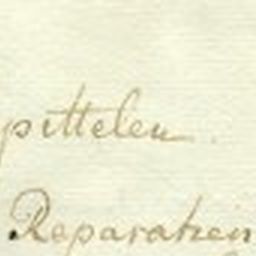 pittelen
Reparatien